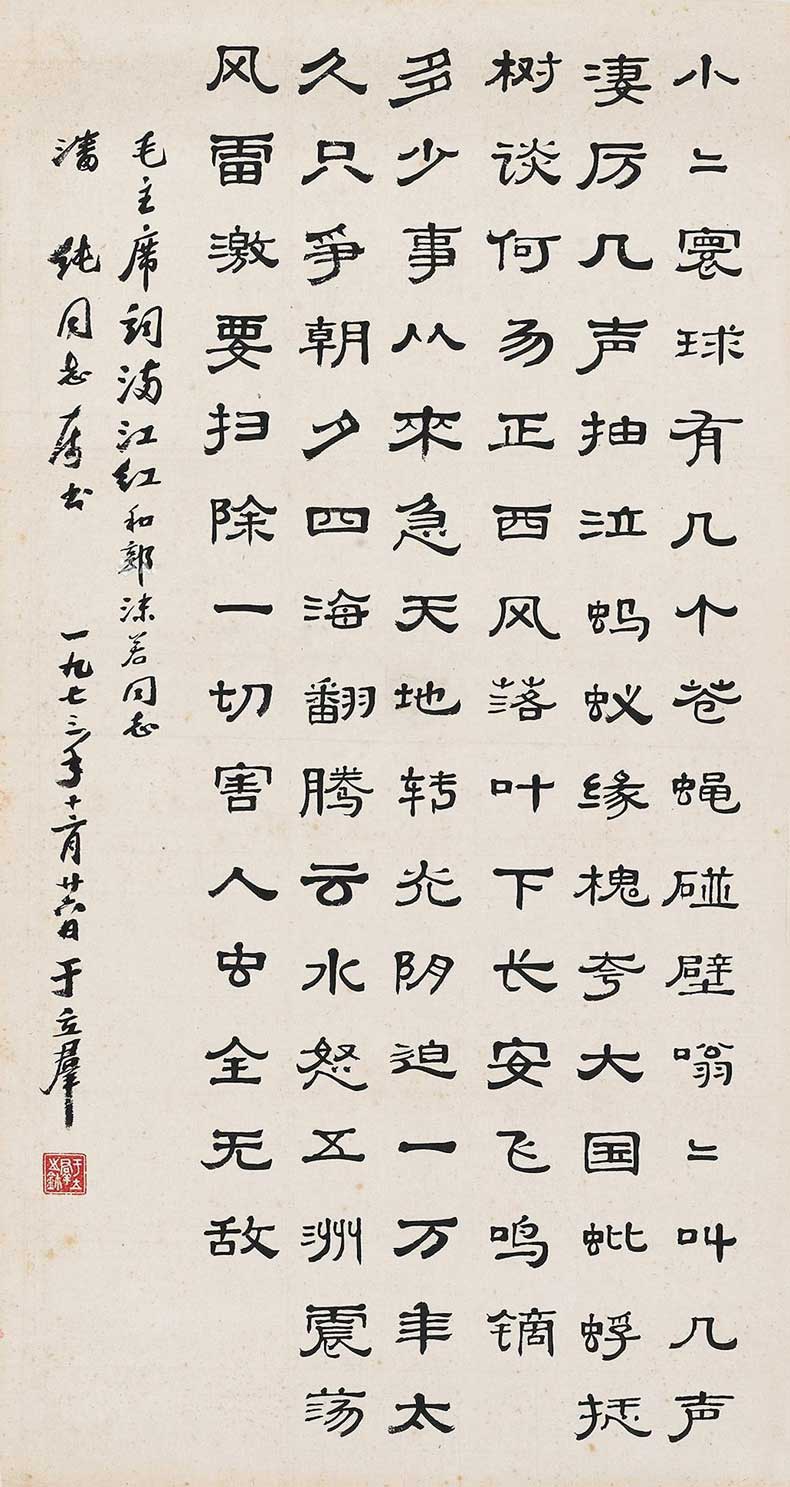 小〻寰球有几个苍蝇碰壁嗡〻叫几声
凄厉几声抽泣蚂蚁缘槐夸大国蚍蜉撼
树谈何易正西风落叶下长安飞鸣镝
多少事从來急天地转光阴迫一万年太
久只爭朝夕四海翻腾云水怒五洲震荡
风雷激要扫除一切害人虫全无敌
毛主席词满江红和郭沫若同志
潘纯同志属书 一九七三年十二月廿六日 于立群